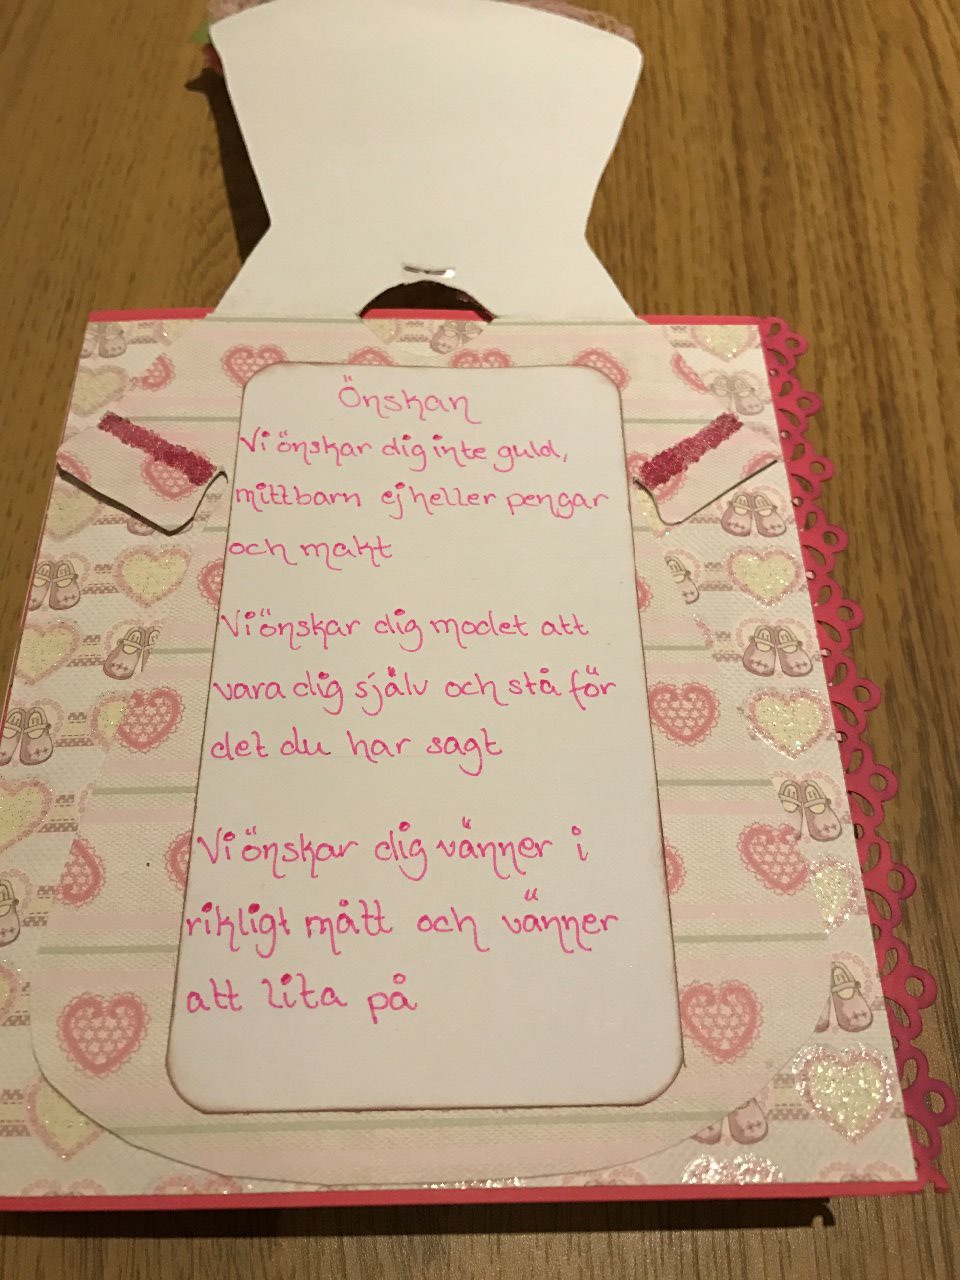 Önskan
Vi önskar dig inte guld,
mitt barn ej heller pengar
och makt
Vi önskar dig modet att
vara dig själv och stå för
det du har sagt
Vi önskar dig vänner i
rikligt mått och vänner
att lita på